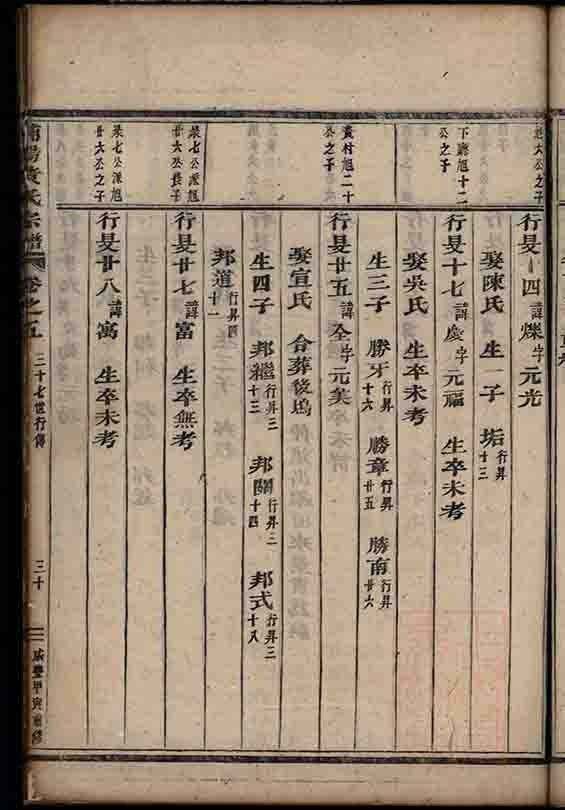 旭六公之子
行旻十四諱爍字元光
娶陳氏 生一子 垢行昇十三
下廳旭十二公之子
行旻十七諱慶字元福 生卒未考
娶吳氏 生卒未考
生三子 勝牙行昇十六 勝章行昇廿五 勝南行昇廿六
黃村旭二十公之子
行旻廿五諱全字元美
娶宣氏 合葬後塢
生四子 邦繼行昇三十三 邦關行昇三十四 邦式行昇三十八
邦道行昇四十一
榮七公派旭廿六公長子
行旻廿七諱富 生卒無考
榮七公派旭廿六公之子
行旻廿八諱寓 生卒未考
黃氏宗譜 卷之五 三十七世行傳 三十 咸豐甲寅重修